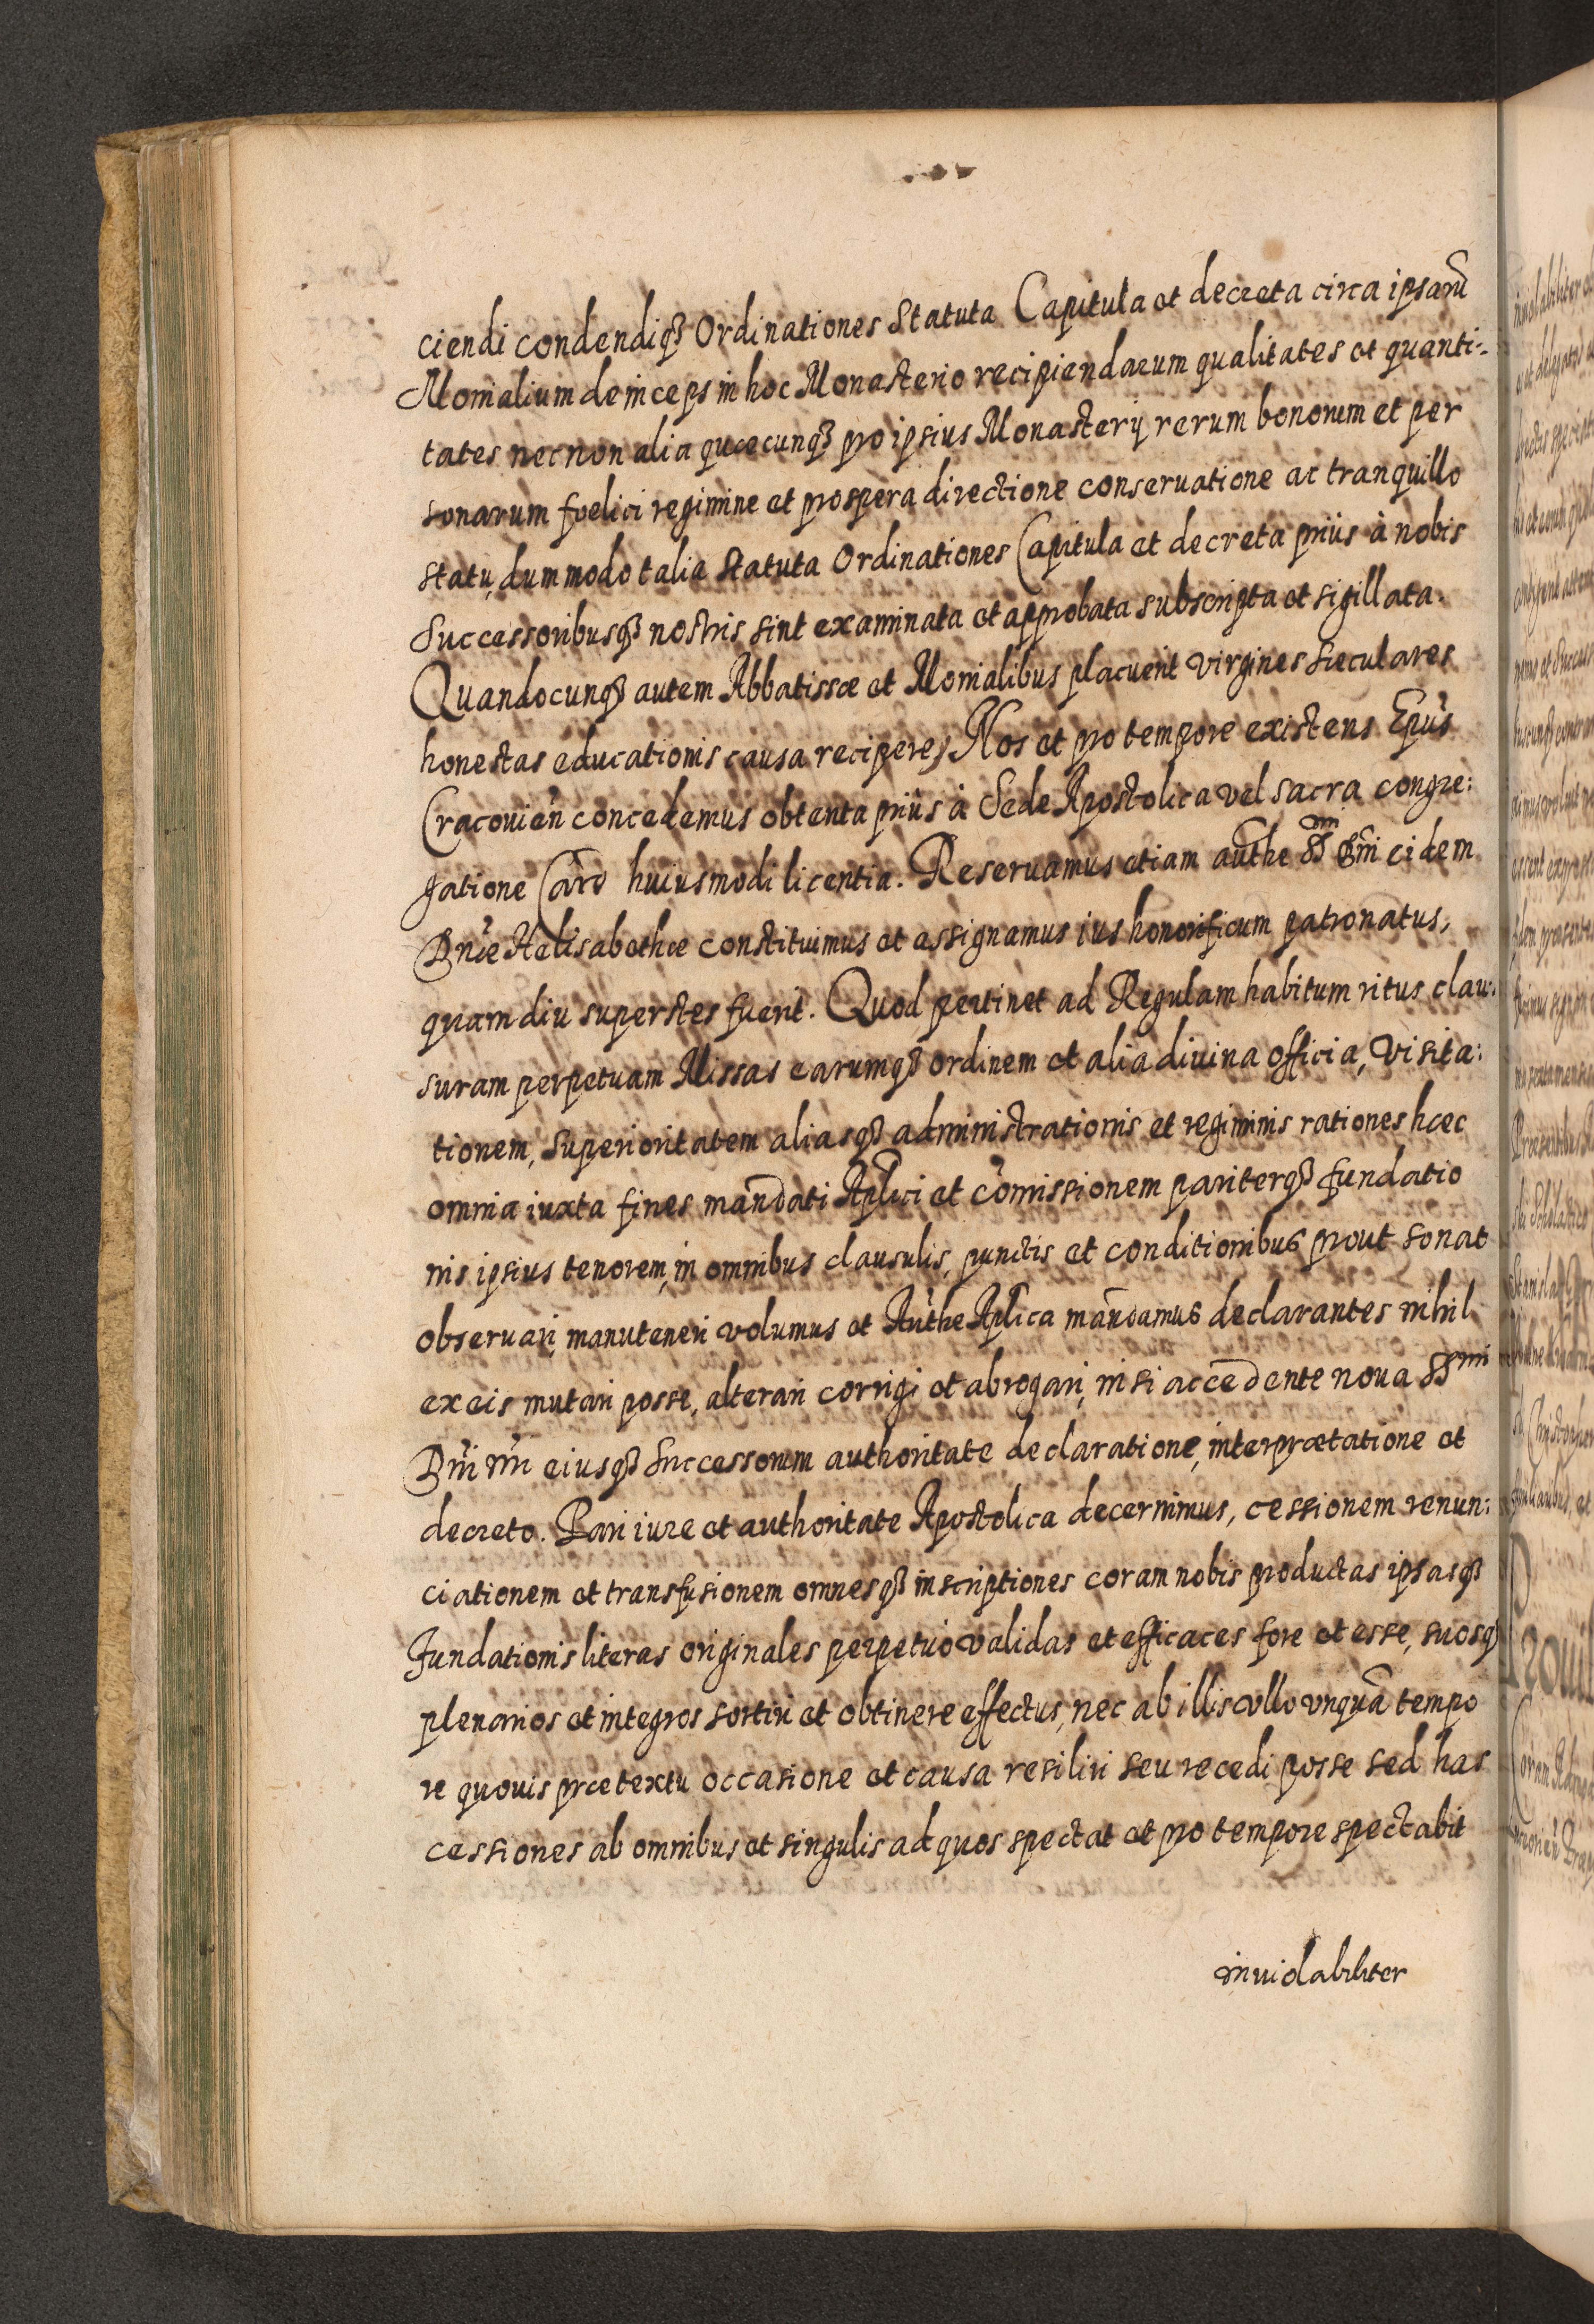 ciendi condendiq₃ Ordinationes Statuta Capitula et decreta circa ipsarū
Monialium deinceps in hoc Monasterio recipiendarum qualitates et quanti:
tates necnon alia quæcunq₃ pro ipsius Monasterij rerum bonorum et per
sonarum fœlici regimine et prospera directione conseruatione ac tranquillo
statu, dummodo talia Statuta Ordinationes Capitula et decreta priùs à nobis
Successoribusq₃ nostris sint examinata et approbata subscripta et sigillata.
Quandocunq₃ autem Abbatissæ et Monialibus placuerit virgines sæculares
honestas educationis causa recipere, Nos et pro tempore existens Ep̄us
Cracouien̄ concedemus obtenta priùs à Sede Apostolica vel sacra congre:
gatione Car̄d huiusmodi licentia. Reseruamus etiam aut̄he SSmi D̄ni eidem
Dn̄æ Helisabethæ constituimus et assignamus ius honorificum patronatus,
quamdiu superstes fuerit. Quod pertinet ad Regulam habitum ritus clau:
suram perpetuam Missas earumq₃ ordinem et alia diuina officia, Visita:
tionem, Superioritatem aliasq₃ administrationis et regiminis rationes hæc
omnia iuxta fines mandati Ap̄lici et com̄issionem pariterq₃ fundatio
nis ipsius tenorem, in omnibus clausulis, punctis et conditionibus prout sonat
obseruari, manuteneri volumus et Aut̄he Ap̄lica mandamus declarantes nihil
ex eis mutari posse, alterari corrigi et abrogari, nisi accedente noua SSmi
D̄ni n̄ri eiusq₃ Successorum authoritate declaratione, interprætatione et
decreto. Pari iure et authoritate Apostolica decernimus, cessionem renun:
ciationem et transfusionem omnesq₃ inscriptiones coram nobis productas ipsasq₃
Fundationis literas originales perpetuò validas et efficaces fore et esse, suosq₃
plenarios et integros sortiri et obtinere effectus, nec ab illis vllo vnquā tempo
re quouis prætextu occasione et causa resiliri seu recedi posse sed has
cessiones ab omnibus et singulis ad quos spectat et pro tempore spectabit
inuiolabiliter